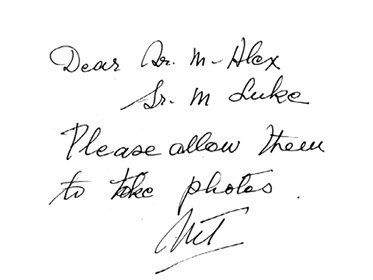 Dear Sr. M-Alex
Sr. M Luke
Please allow them
to take photos.
MT